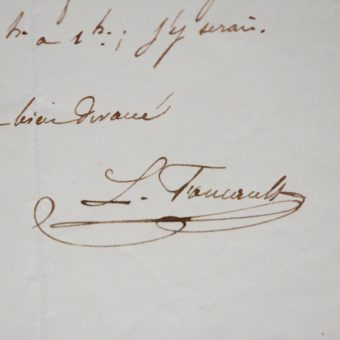 h. a 1 h.; j'y serai.
bien dévoué
L. Foucault